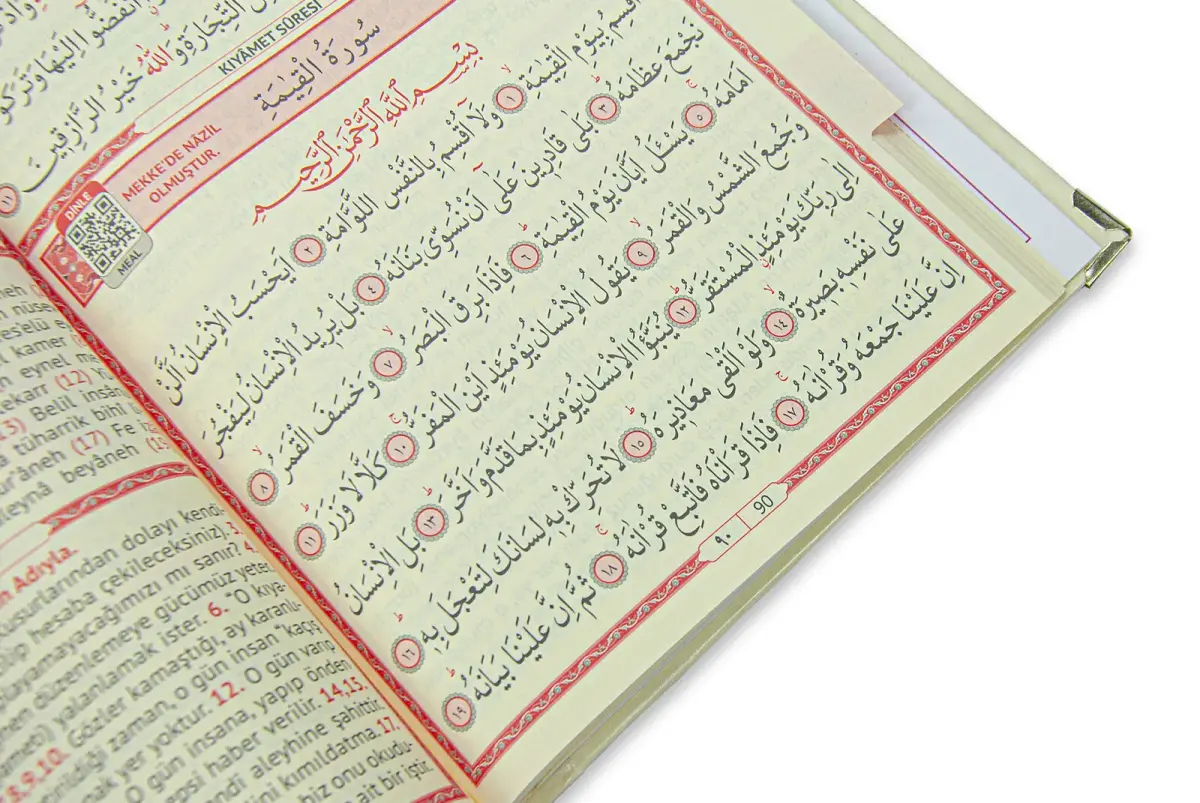 انْفَضُّوا اِلَيْهَا وَتَرَكُو
التِّجَارَةِ وَاللّٰهُ خَيْرُ الرَّازِق۪ينَ ١١
KIYÂMET SÛRESİ
سُورَةُ الْقِيٰمَةِ
MEKKE'DE NÂZİL
OLMUŞTUR.
DİNLE
MEAL
بِسْمِ اللّٰهِ الرَّحْمٰنِ الرَّح۪يمِ
اُقْسِمُ بِيَوْمِ الْقِيٰمَةِ ١ وَلَٓا اُقْسِمُ بِالنَّفْسِ اللَّوَّامَةِ ٢ اَيَحْسَبُ الْاِنْسَانُ اَلَّنْ
نَجْمَعَ عِظَامَهُ ٣ بَلٰى قَادِر۪ينَ عَلٰٓى اَنْ نُسَوِّيَ بَنَانَهُ ٤ بَلْ يُر۪يدُ الْاِنْسَانُ لِيَفْجُرَ
اَمَامَهُ ٥ يَسْـَٔلُ اَيَّانَ يَوْمُ الْقِيٰمَةِ ٦ فَاِذَا بَرِقَ الْبَصَرُ ٧ وَخَسَفَ الْقَمَرُ ٨
وَجُمِعَ الشَّمْسُ وَالْقَمَرُ ٩ يَقُولُ الْاِنْسَانُ يَوْمَئِذٍ اَيْنَ الْمَفَرُّ ١٠ كَلَّا لَا وَزَرَ ١١
اِلٰى رَبِّكَ يَوْمَئِذٍ الْمُسْتَقَرُّ ١٢ يُنَبَّؤُا الْاِنْسَانُ يَوْمَئِذٍ بِمَا قَدَّمَ وَاَخَّرَ ١٣ بَلِ الْاِنْسَانُ
عَلٰى نَفْسِه۪ بَص۪يرَةٌ ١٤ وَلَوْ اَلْقٰى مَعَاذ۪يرَهُ ١٥ لَا تُحَرِّكْ بِه۪ لِسَانَكَ لِتَعْجَلَ بِه۪ ١٦
اِنَّ عَلَيْنَا جَمْعَهُ وَقُرْاٰنَهُ ١٧ فَاِذَا قَرَاْنَاهُ فَاتَّبِعْ قُرْاٰنَهُ ١٨ ثُمَّ اِنَّ عَلَيْنَا بَيَانَهُ ١٩
٩٠ 90
kamer
eynel
(12)
(13) Belil insa
tüharrik bihî
(17) Fe
beyâneh
Adıyla.
kusurlarından dolayı kendi-
hesaba çekileceksiniz). 3.
layamayacağımızı mı sanır? 4.
düzenlemeye gücümüz yeter.
yalanlamak ister. 6. "O kıya-
8,9,10. Gözler kamaştığı, ay karanlı-
zaman, o gün insan "kaçış
yer yoktur. 12. O gün varıp
O gün insana, yapıp önden
haber verilir. 14,15.
aleyhine şahittir.
kımıldatma. 17.
biz onu okudu-
ait bir iştir.